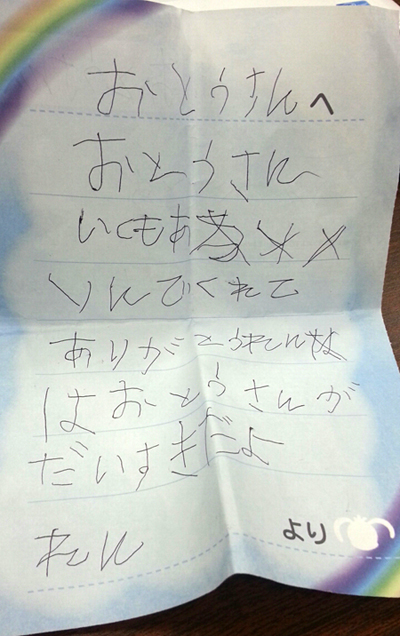 おとうさんへ
おとうさん
いくもあ
りんでくれて
ありがとうれんね
はおとうさんが
だいすきだよ
れん
より